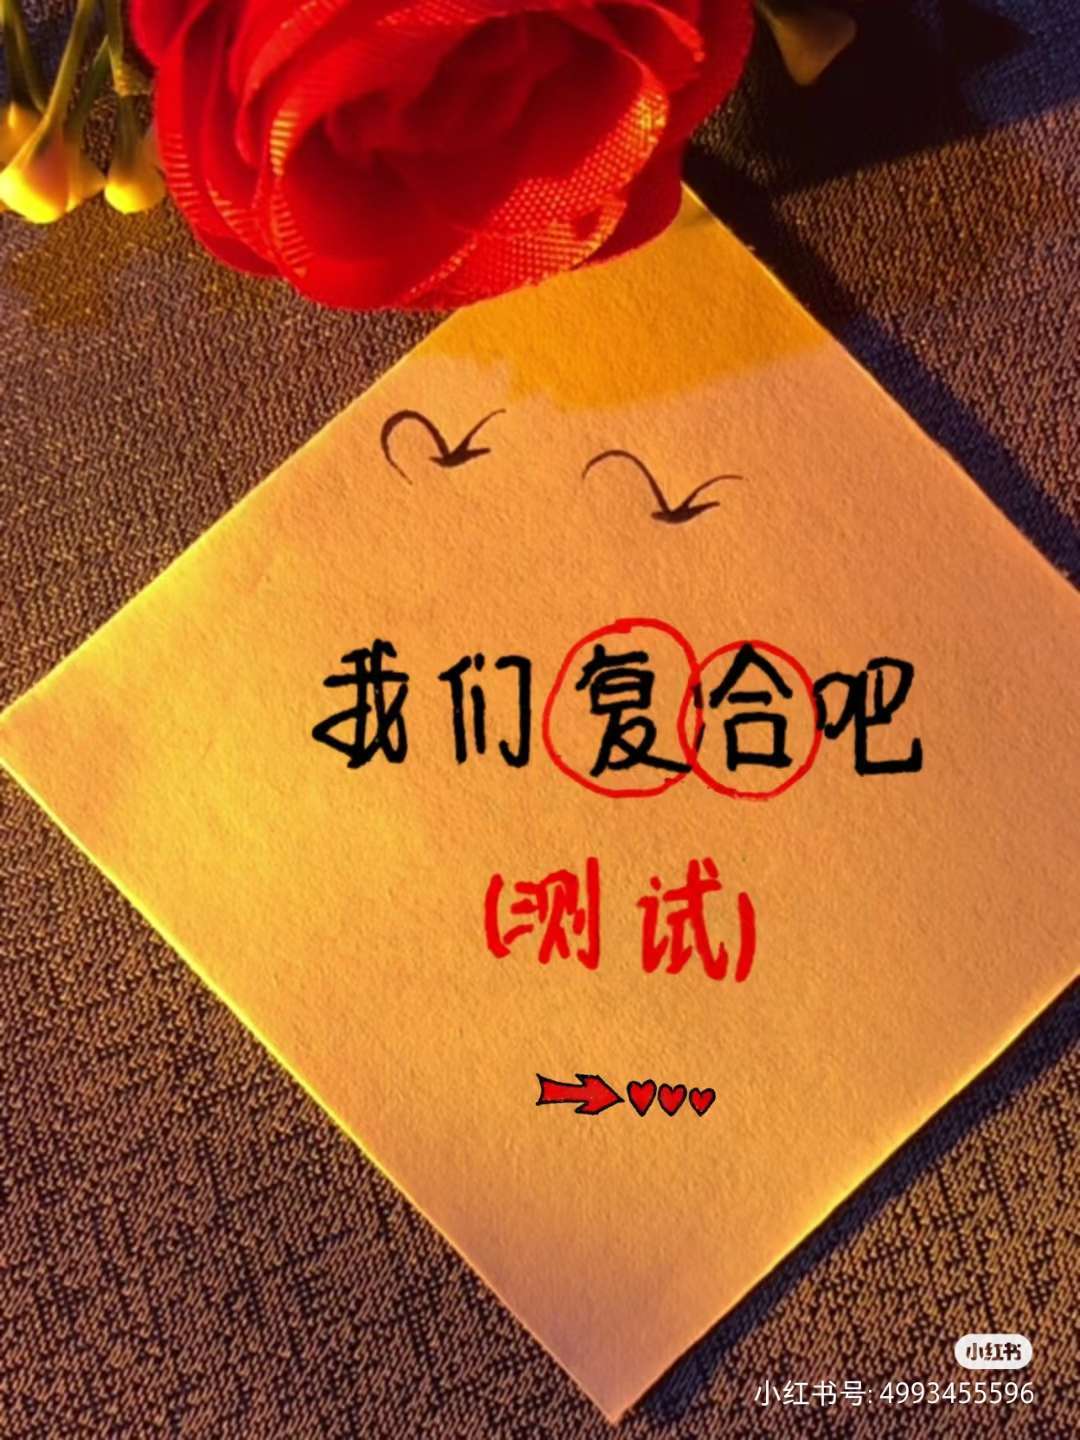 我们复合吧
(测试)
小红书
小红书号: 4993455596